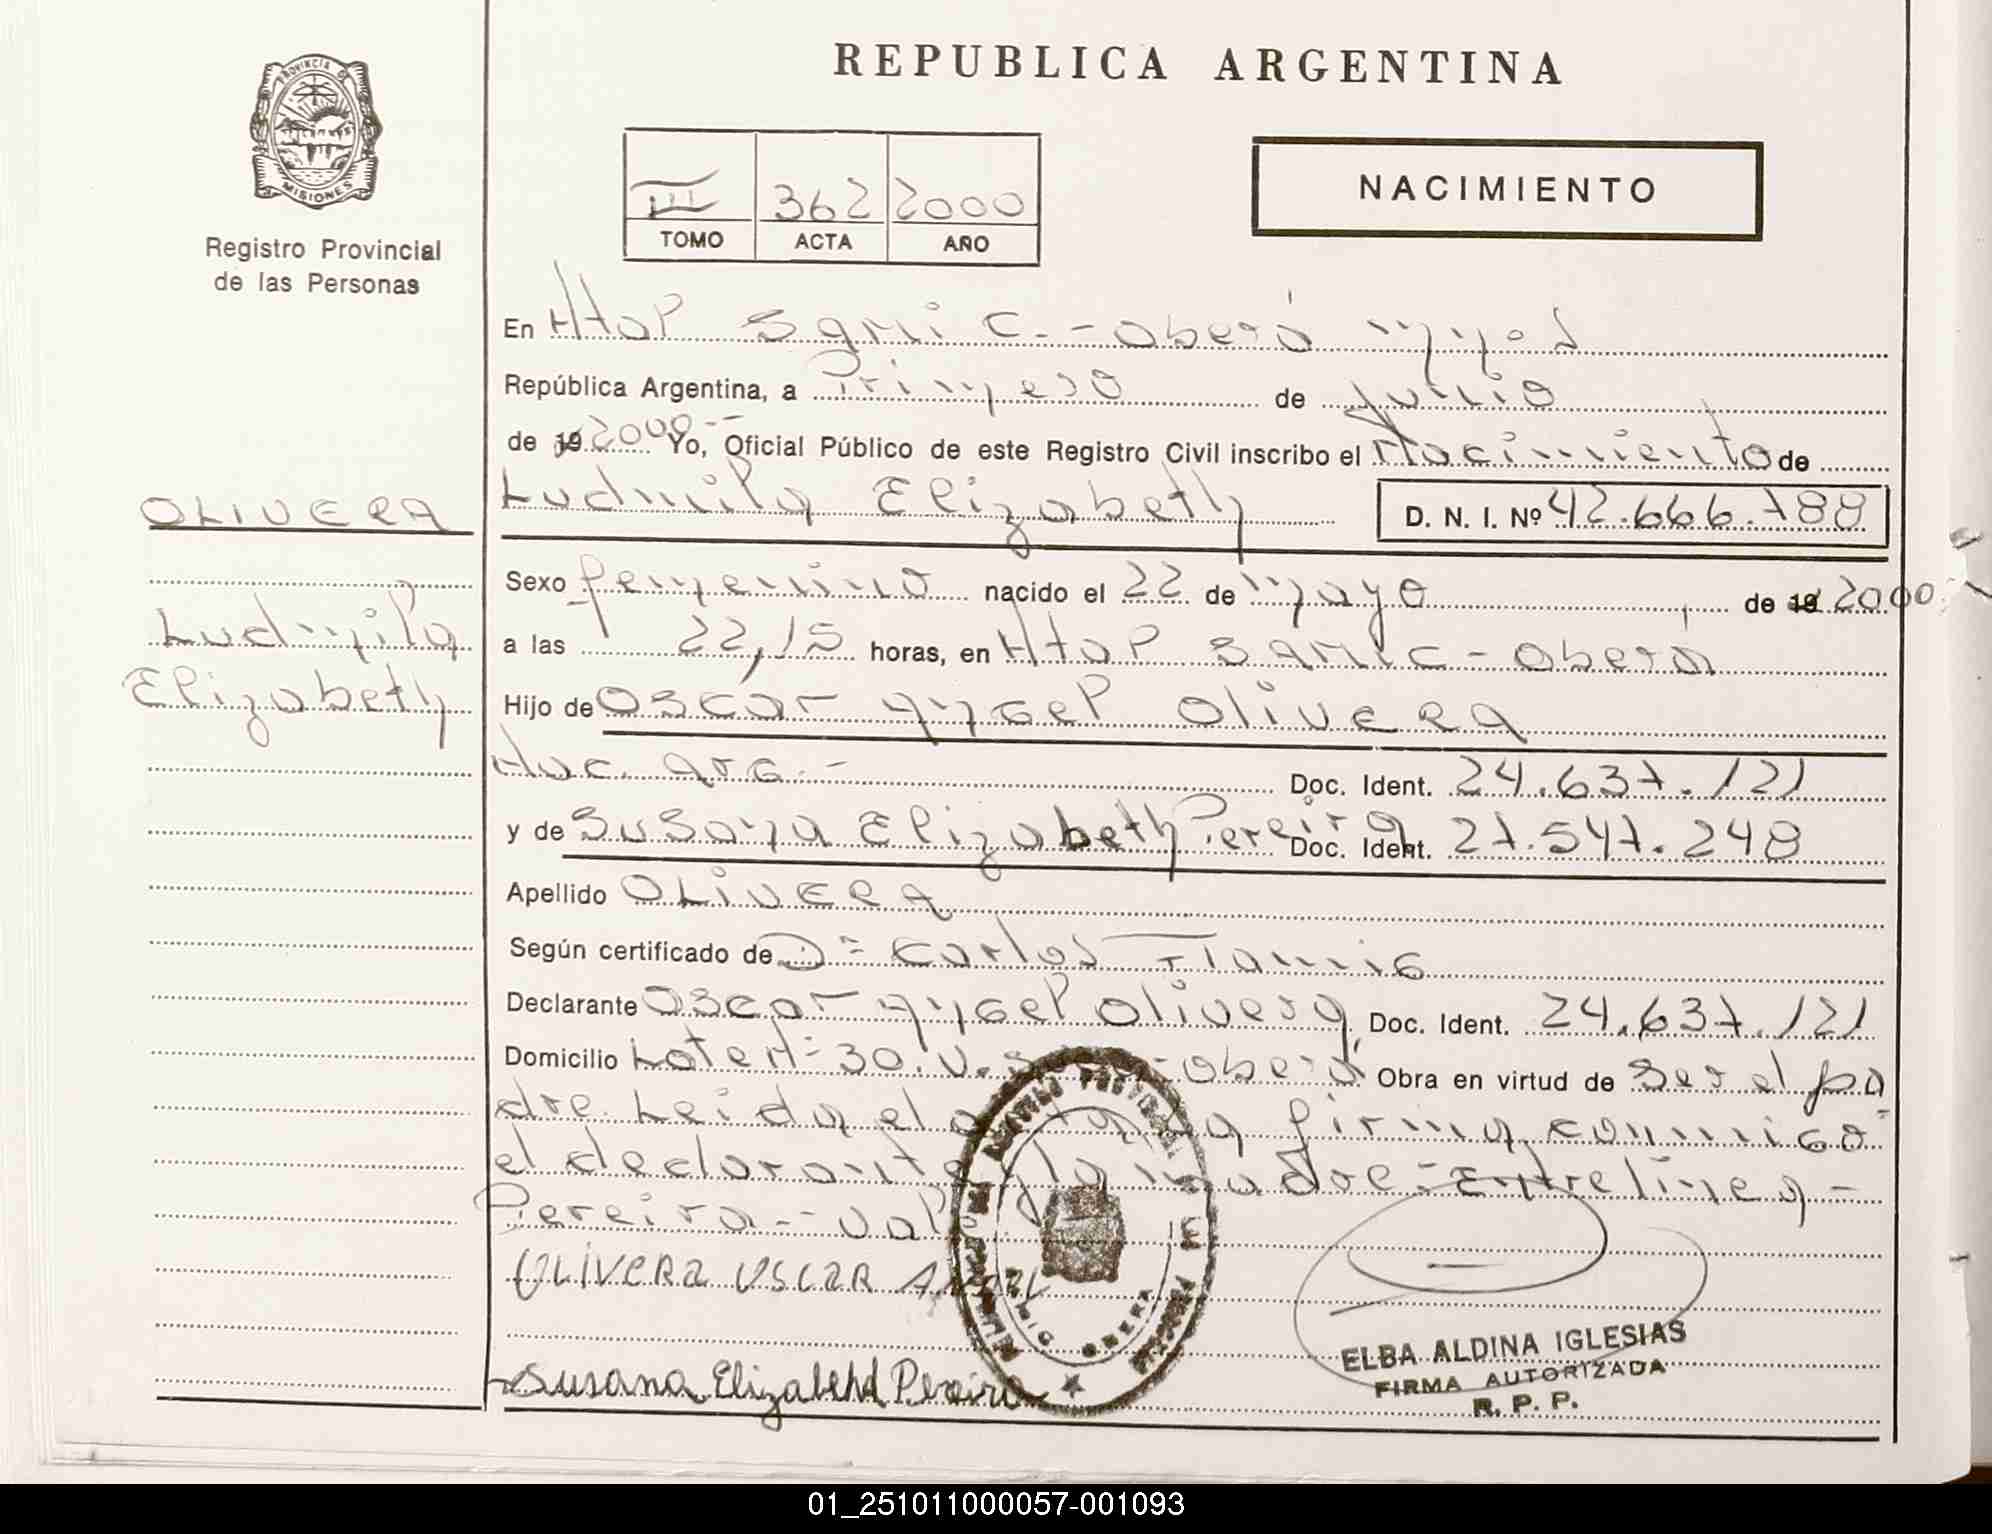 REPUBLICA ARGENTINA
PROVINCIA DE
MISIONES
Registro Provincial
de las Personas
III 362 2000
TOMO ACTA AÑO
NACIMIENTO
En Htal Samic.- Oberá Mnes
República Argentina, a Primero de Junio
de 19 2000.- Yo, Oficial Público de este Registro Civil inscribo el Nacimiento de
OLIVERA
Ludmila Elizabeth D. N. I. Nº 42.666.788
Ludmila
Elizabeth
Sexo femenino nacido el 22 de mayo de 19 2000.
a las 22,15 horas, en Htal Samic - Oberá
Hijo de Oscar Angel OLIVERA
Nac. Arg. - Doc. Ident. 24.637.121
y de Susana Elizabeth Pereira Doc. Ident. 27.547.248
Apellido OLIVERA
Según certificado de D= Carlos
Declarante Oscar Angel Olivera, Doc. Ident. 24.637.121
Domicilio Lote Nº 30. V. Oberá Obra en virtud de ser el pa
dre. Leida el acta, la firma, conmigo
el declarante y la madre - Entre linea -
Pereira - Vale
OLIVERA OSCAR ANGEL
ELBA ALDINA IGLESIAS
FIRMA AUTORIZADA
R. P. P.
Susana Elizabehd Pereira
OBERA
01_251011000057-001093